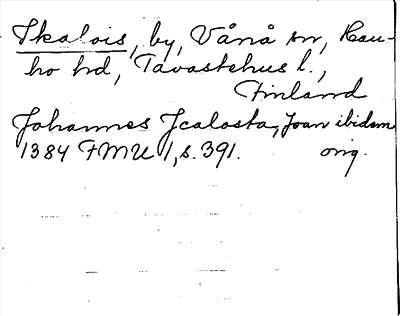 Ikalois, by, Vånå sn, Hau-
ho hd, Tavastehus l.,
Finland
Johannes Jcalosta, Joan ibidem
1384 FMU 1, s. 391. orig.